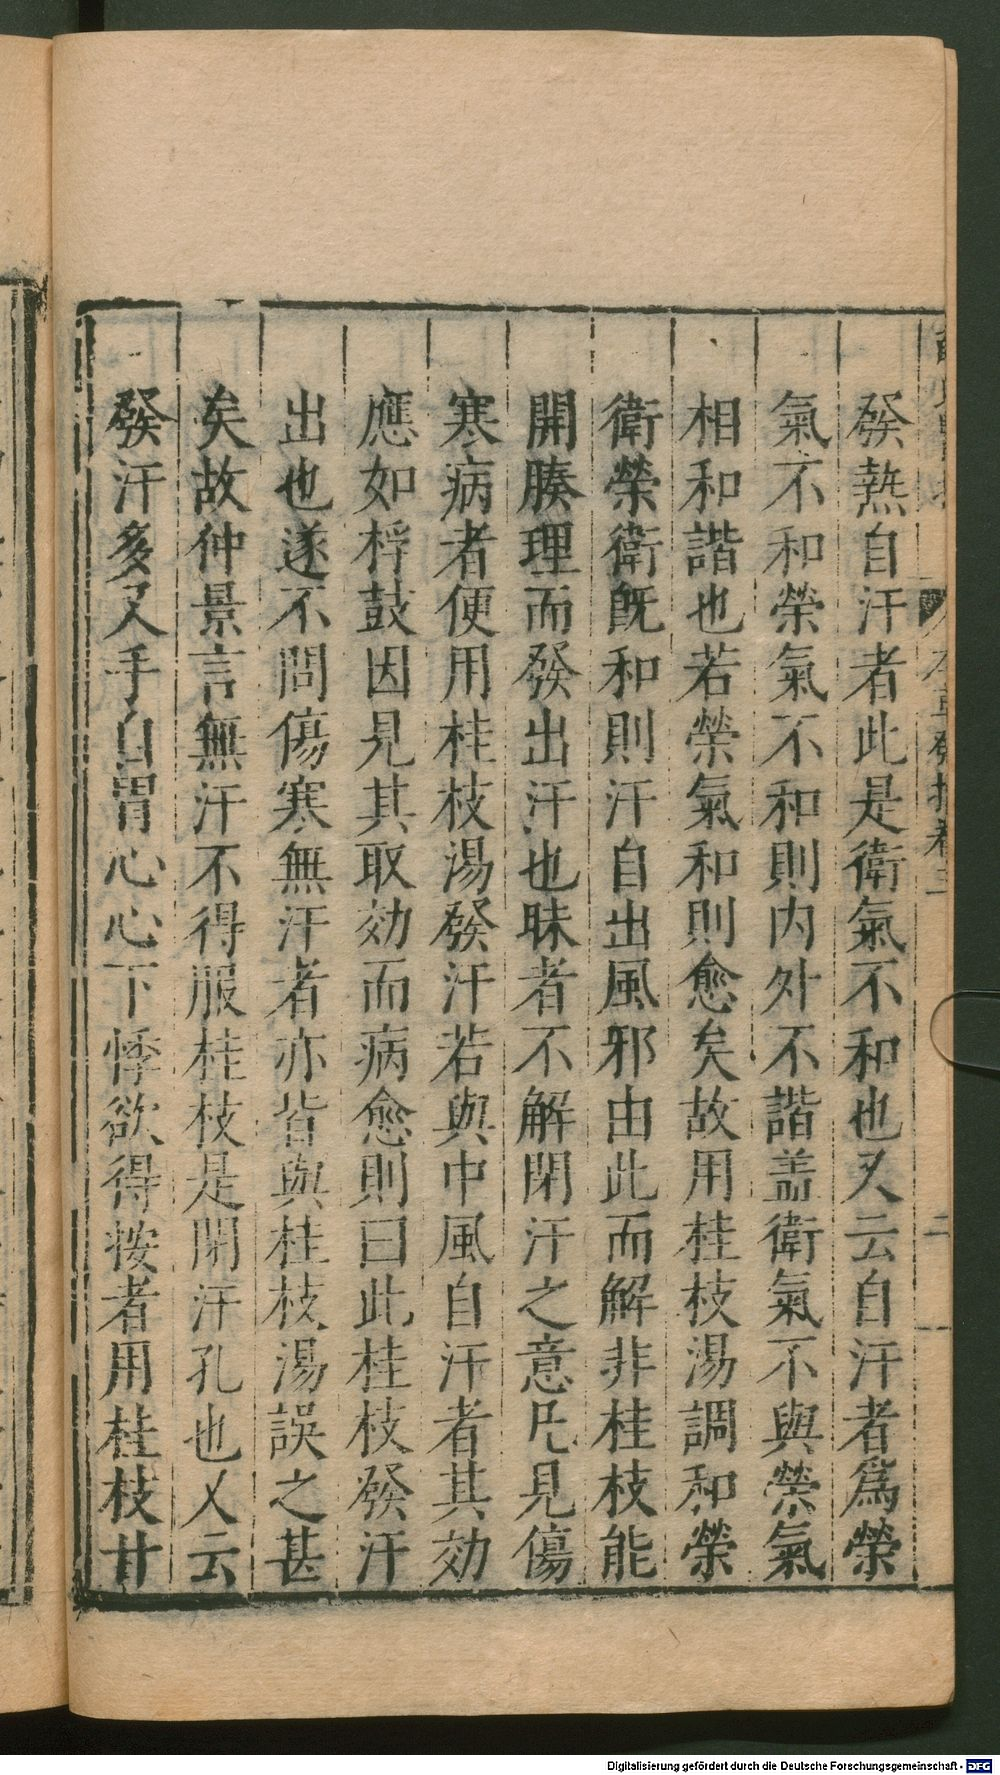 發熱自汗者此是衛氣不和也又云自汗者為榮
氣不和榮氣不和則内外不諧盖衛氣不與榮氣
相和諧也若榮氣和則愈矣故用桂枝湯調和榮
衛榮衛既和則汗自出風邪由此而解非桂枝能
開腠理而發出汗也昧者不解閉汗之意凡見傷
寒病者便用桂枝湯發汗若與中風自汗者其効
應如桴鼓因見其取効而病愈則曰此桂枝發汗
出也遂不問傷寒無汗者亦皆與桂枝湯誤之甚
矣故仲景言無汗不得服桂枝是閉汗孔也又云
發汗多叉手自冒心心下悸欲得按者用桂枝甘
本草發揮卷三
二
Digitalisierung gefördert durch die Deutsche Forschungsgemeinschaft - DFG